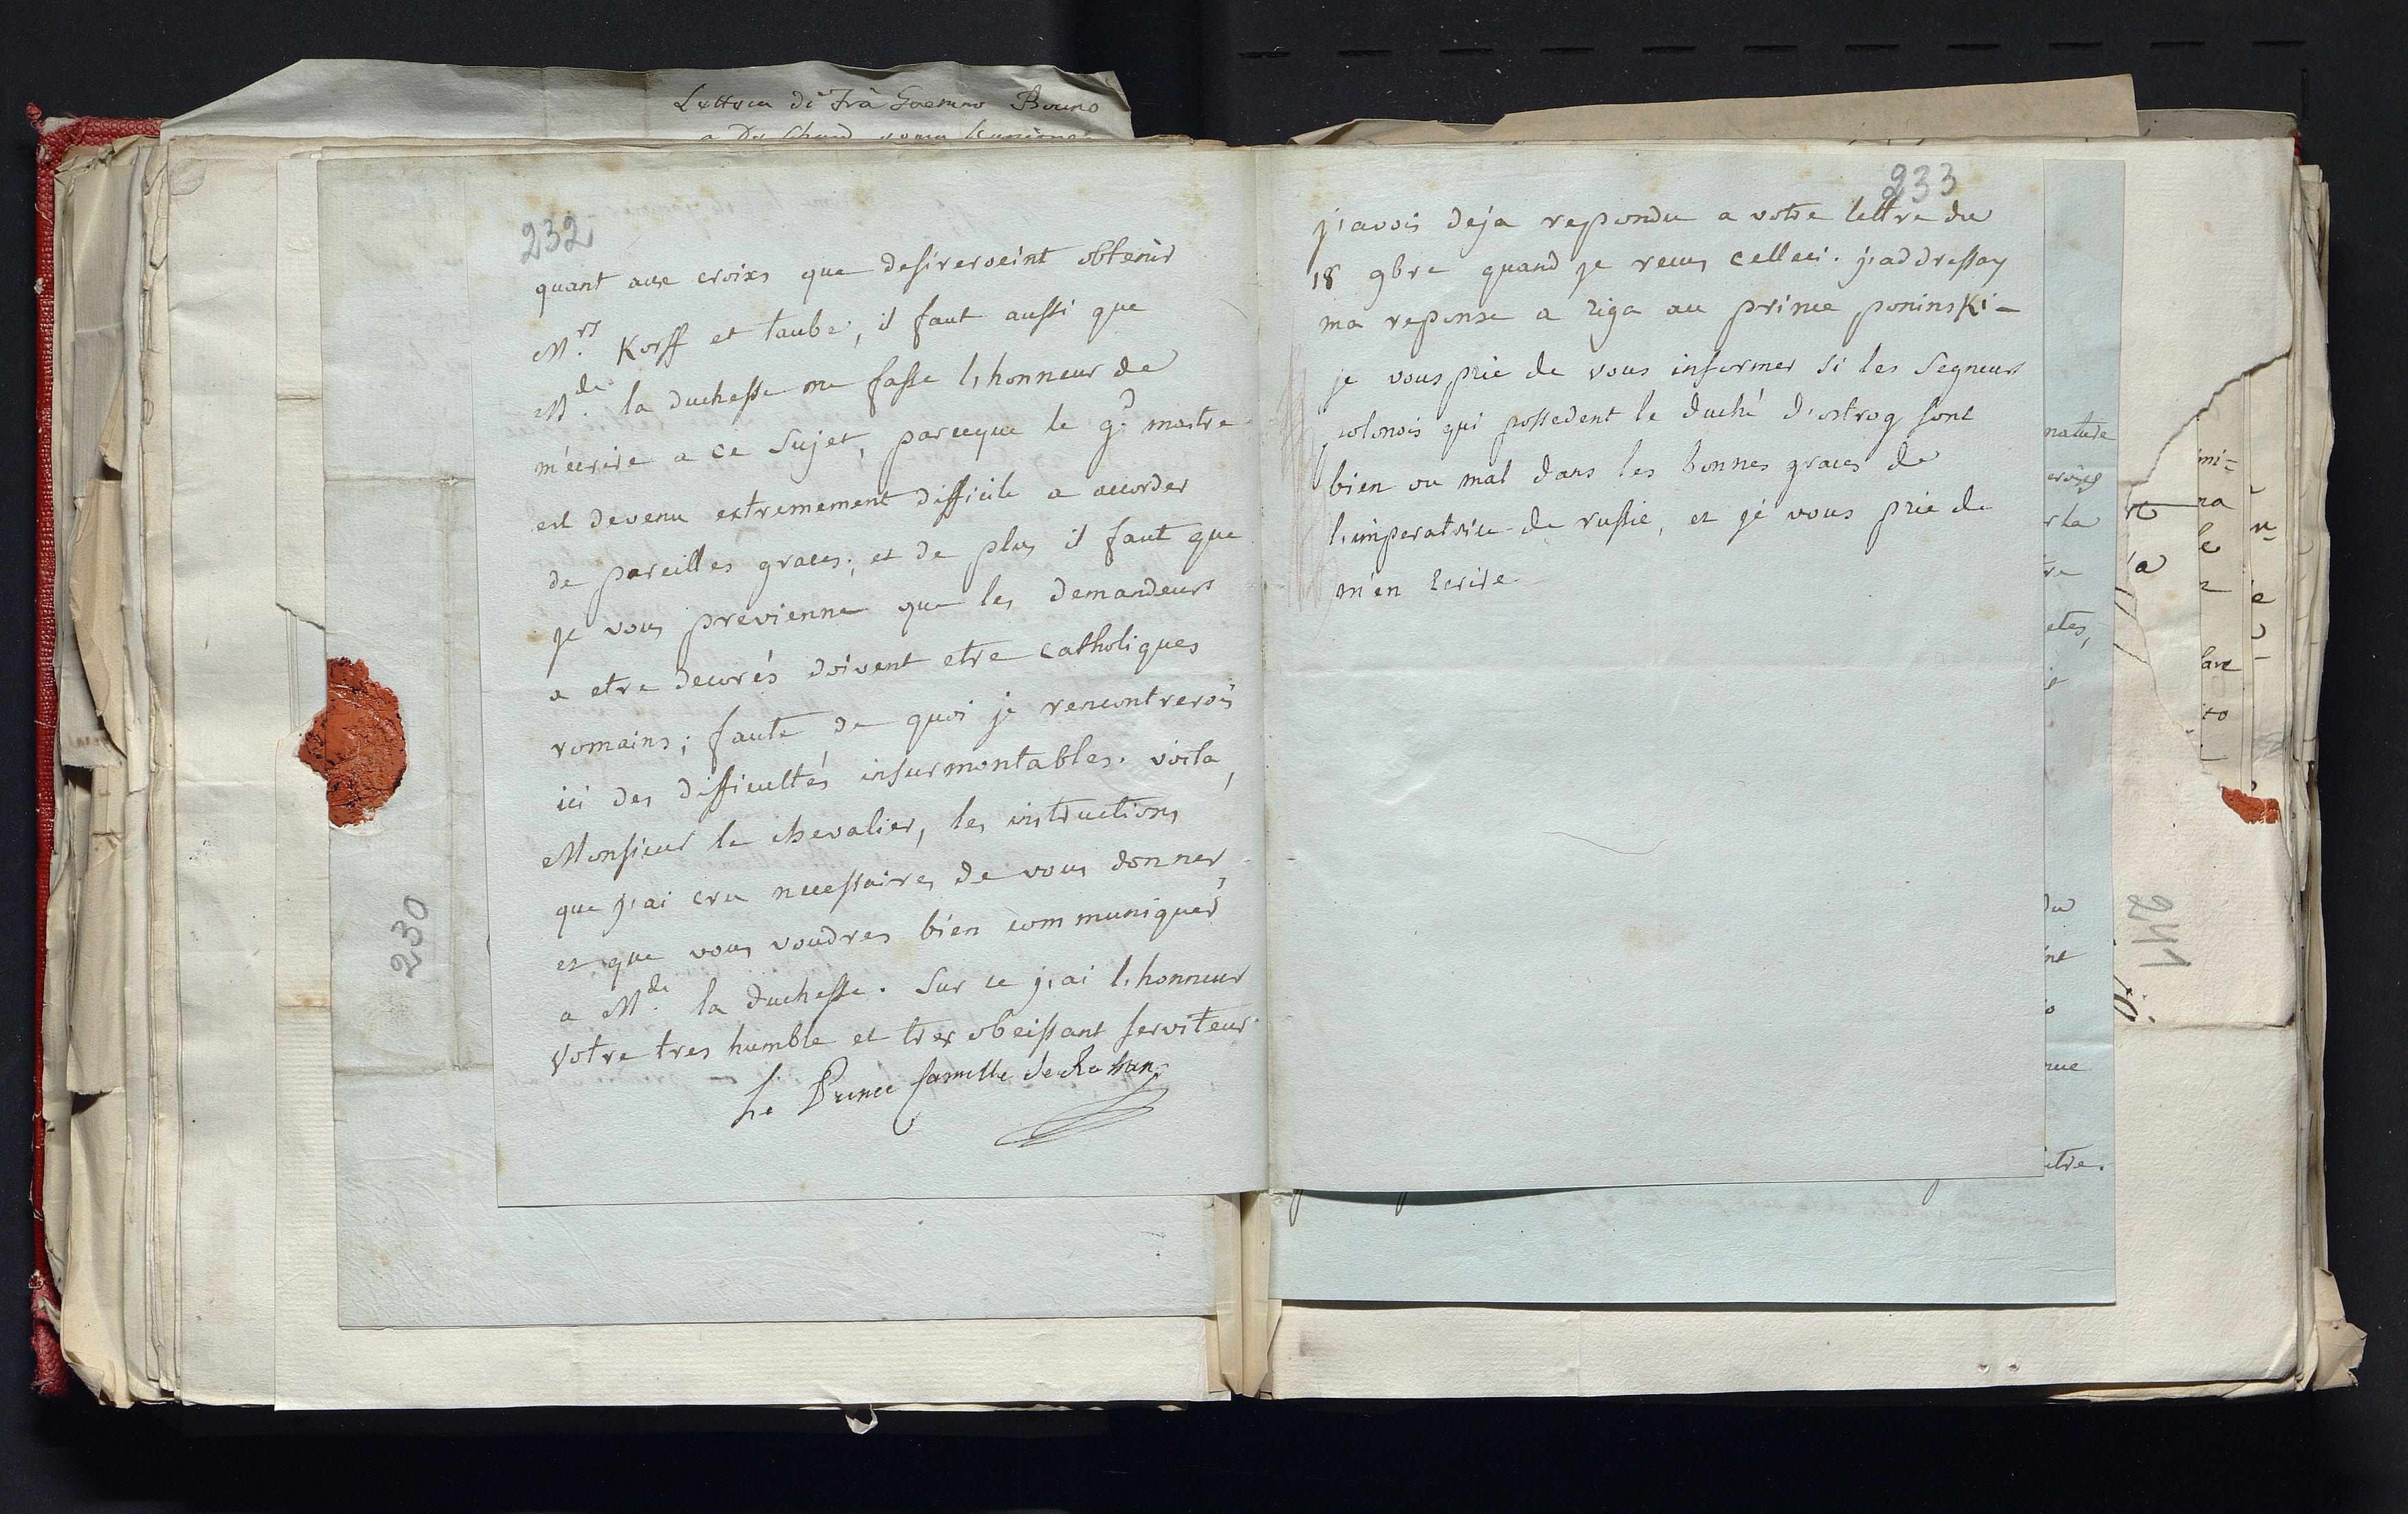 232
quant aux croixs que desireroeint obtenir
M.rs Korff et taube, il faut aussi que
M.de la duchesse me fasse l'honneur de
m'ecrire a ce sujet, parceque le g.d maitre
est devenu extremement difficile a accorder
de pareilles graces; et de plus il faut que
je vous previenne que les demandeurs
a etre decorés doivent etre catholiques
romains; faute de quoi je rencontrerois
ici des difficultés insurmontables. voila,
Monsieur le chevalier, les instructions
que j'ai cru necessaires de vous donner,
et que vous voudres bien communiquer
a M.de la duchesse. sur ce j'ai l'honneur
votre tres humble et tres obeissant serviteur
Le Prince Camille de Rohan
233
j'avois deja repondu a votre lettre du
18 9bre quand je recus celleci. j'addressay
ma reponse a riga au prince poninski-
je vous prie de vous informer si les segneurs
polonois qui possedent le duché d'ostrog sont
bien ou mal dans les bonnes graces de
l'imperatrice de russie, et je vous prie de
m'en ecrire
230
241
Lettera di Frà Bruno
nature
croixs